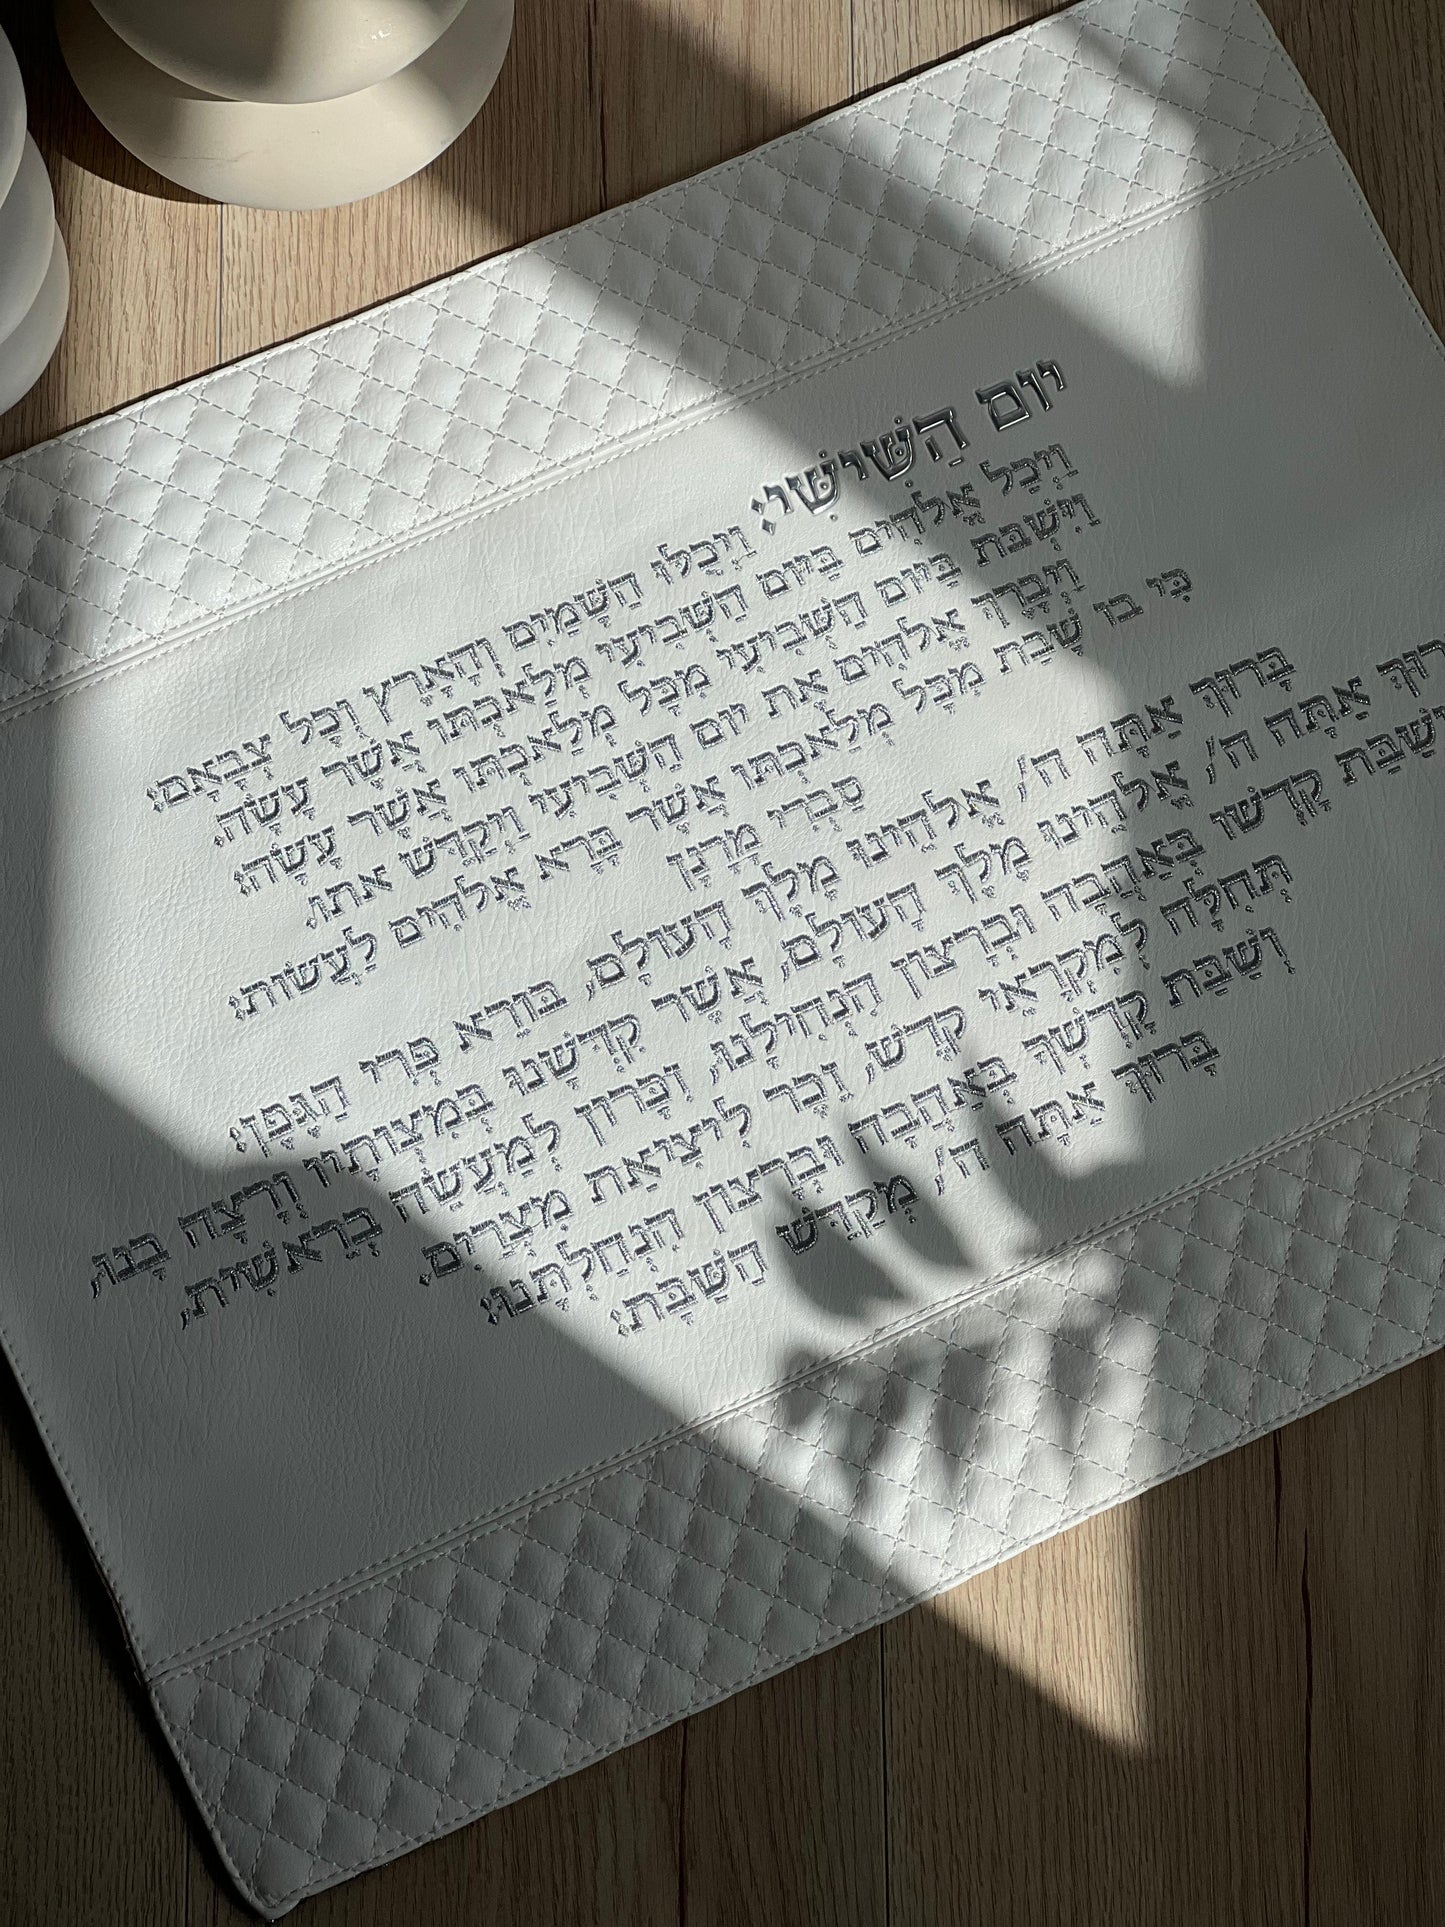 יוֹם הַשִּׁישִּׁי:
וַיְכֻלּוּ הַשָּׁמַיִם וְהָאָרֶץ וְכָל צְבָאָם:
וַיְכַל אֱלֹהִים בַּיּוֹם הַשְּׁבִיעִי מְלַאכְתּוֹ אֲשֶׁר עָשָׂה.
וַיִּשְׁבֹּת בַּיּוֹם הַשְּׁבִיעִי מִכָּל מְלַאכְתּוֹ אֲשֶׁר עָשָׂה:
וַיְבָרֶךְ אֱלֹהִים אֶת יוֹם הַשְּׁבִיעִי וַיְקַדֵּשׁ אֹתוֹ.
כִּי בוֹ שָׁבַת מִכָּל מְלַאכְתּוֹ אֲשֶׁר בָּרָא אֱלֹהִים לַעֲשׂוֹת:
סַבְרִי מָרָנָן
בָּרוּךְ אַתָּה ה', אֱלֹהֵינוּ מֶלֶךְ הָעוֹלָם, בּוֹרֵא פְּרִי הַגָּפֶן:
רוּךְ אַתָּה ה', אֱלֹהֵינוּ מֶלֶךְ הָעוֹלָם, אֲשֶׁר קִדְּשָׁנוּ בְּמִצְוֹתָיו וְרָצָה בָנוּ,
שַׁבַּת קָדְשׁוֹ בְּאַהֲבָה וּבְרָצוֹן הִנְחִילָנוּ, זִכָּרוֹן לְמַעֲשֵׂה בְרֵאשִׁית,
תְּחִלָּה לְמִקְרָאֵי קֹדֶשׁ, זֵכֶר לִיצִיאַת מִצְרַיִם.
וְשַׁבַּת קָדְשְׁךָ בְּאַהֲבָה וּבְרָצוֹן הִנְחַלְתָּנוּ:
בָּרוּךְ אַתָּה ה', מְקַדֵּשׁ הַשַּׁבָּת: